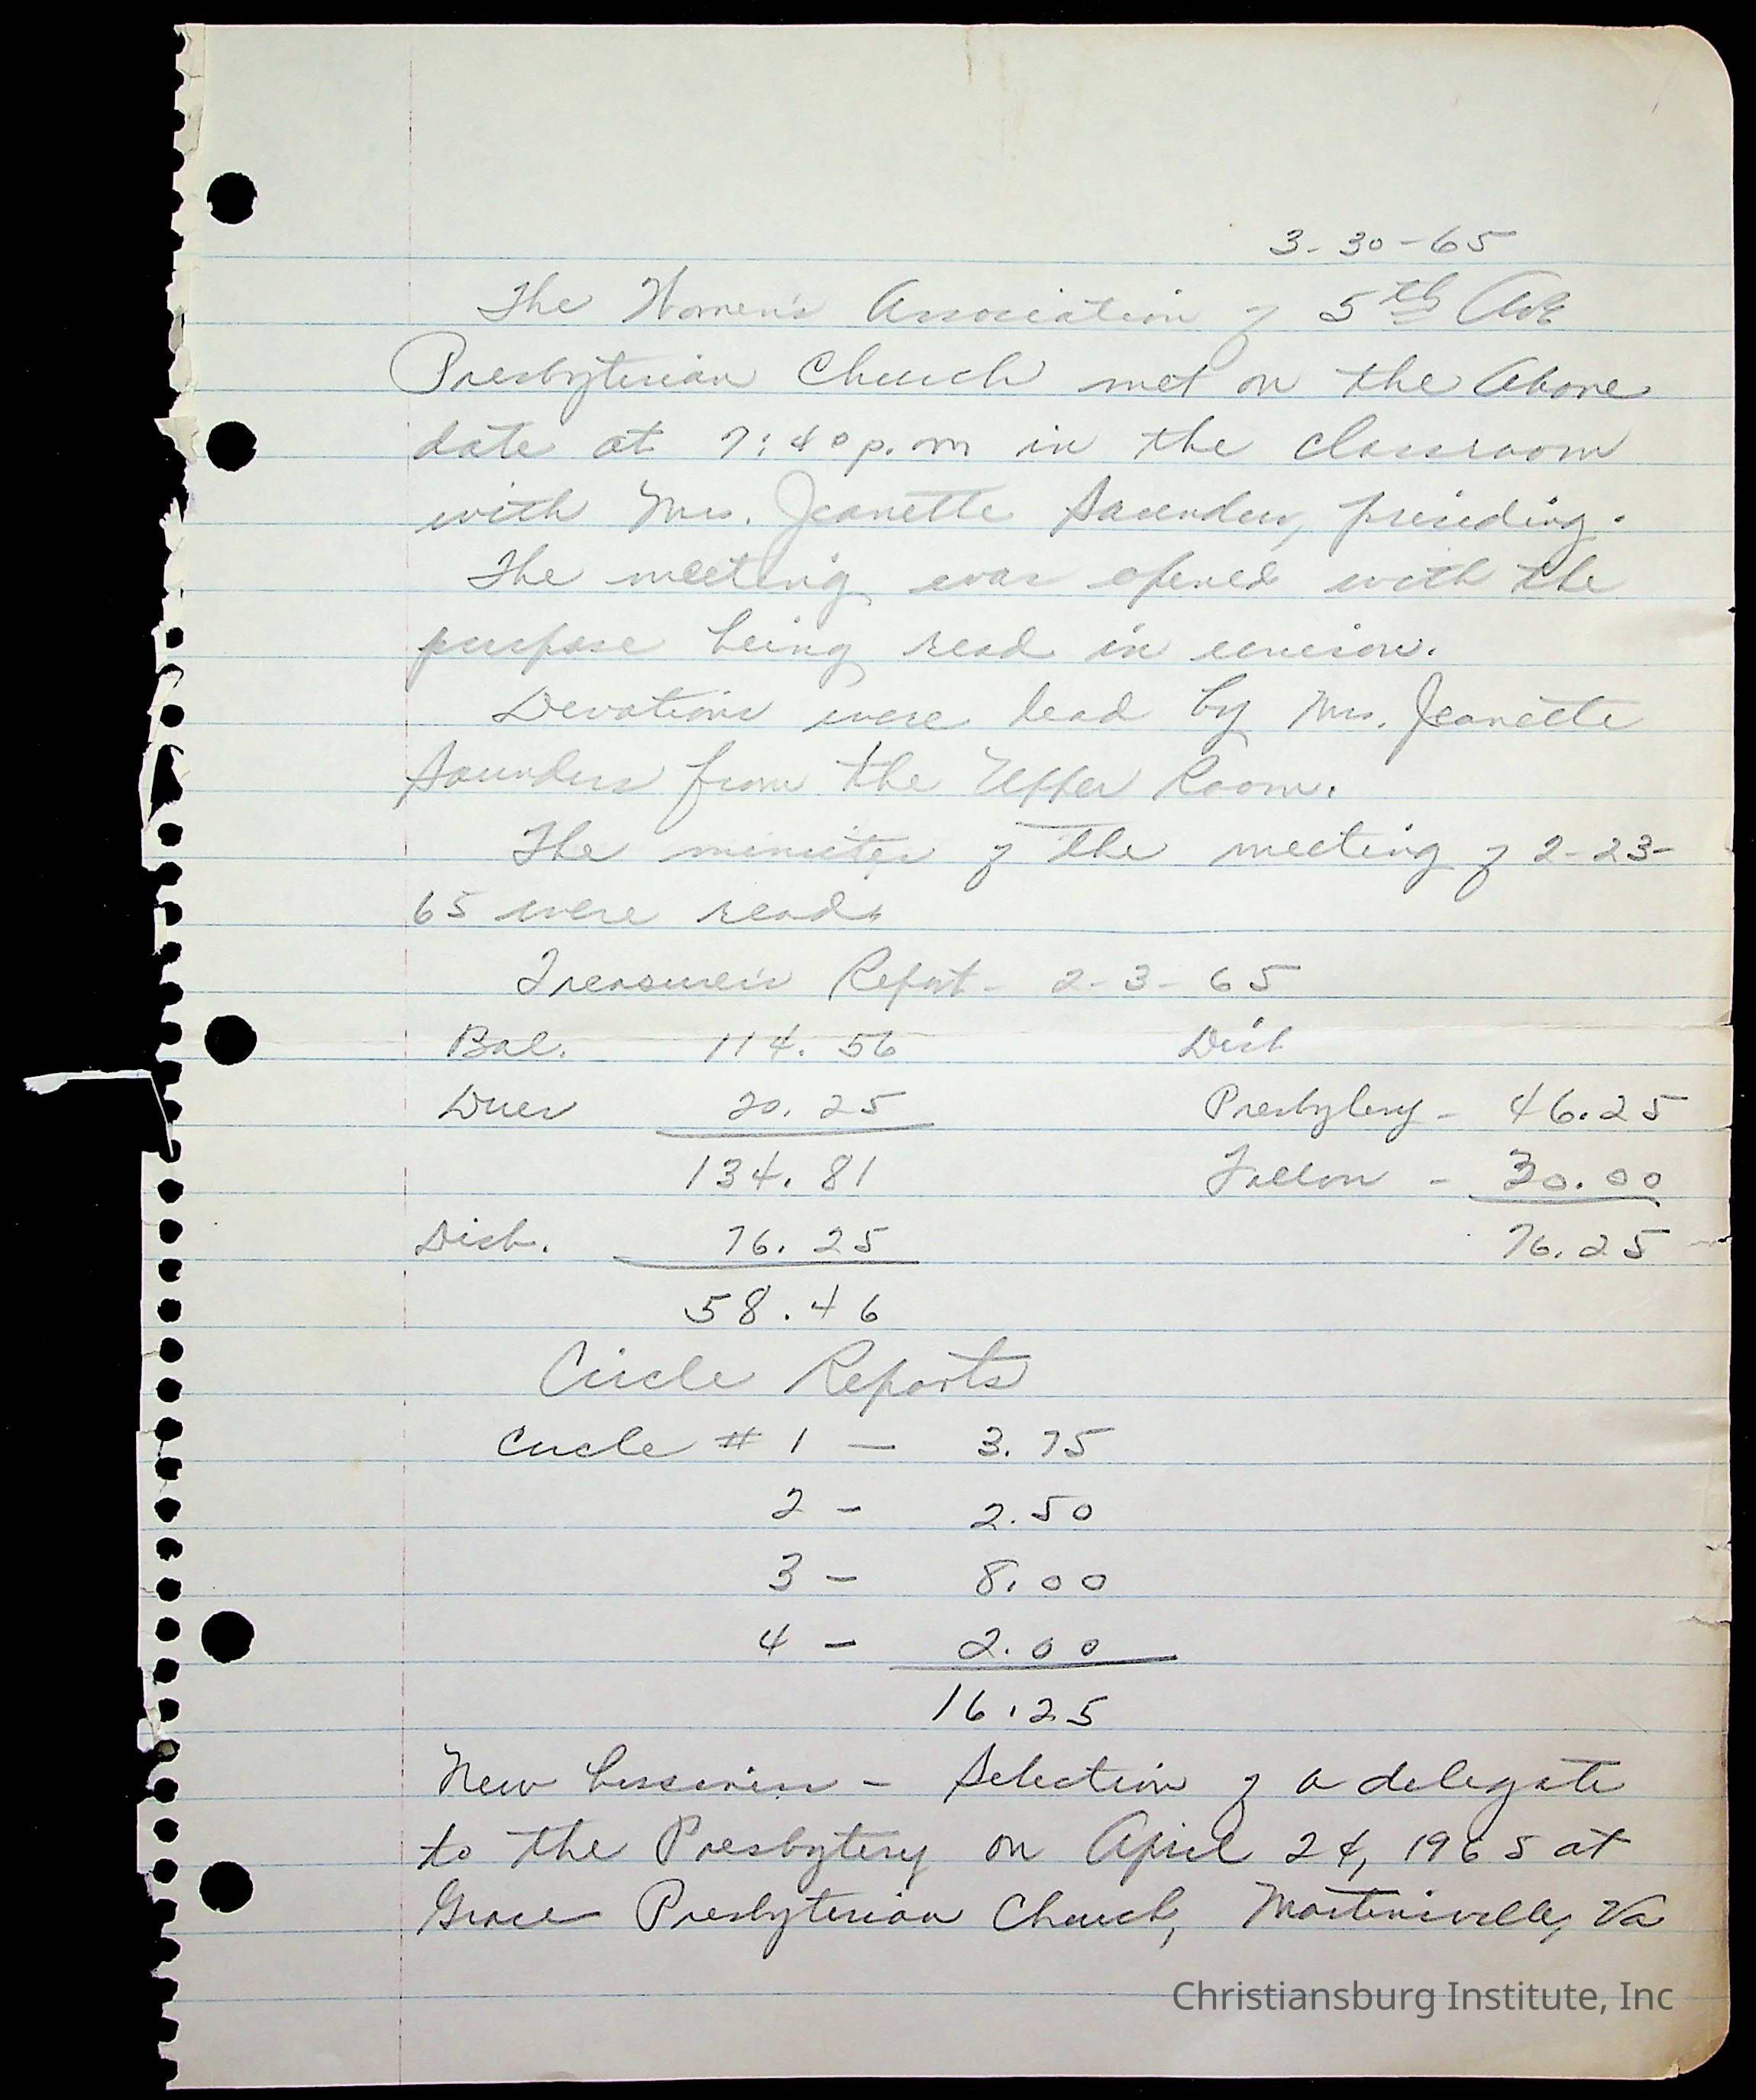 3-30-65
The Women's Association of 5th Ave
Presbyterian Church met on the Above
date at 7:40 p.m in the classroom
with Mrs. Jeanette Saunders, presiding.
The meeting was opened with the
purpose being read in unison.
Devotions were lead by Mrs. Jeanette
Saunders from the Upper Room.
The minutes of the meeting of 2-23-
65 were read.
Treasurer's Report - 2-3-65
Bal. 114.56 Disb
Dues 20.25 Presbytery - 46.25
134.81 Fallon - 30.00
Disb. 76.25 76.25
58.46
Circle Reports
Circle # 1 - 3.75
2 - 2.50
3 - 8.00
4 - 2.00
16.25
New business - Selection of a delegate
to the Presbytery on April 24, 1965 at
Grace Presbyterian Church, Martinsville, Va
Christiansburg Institute, Inc